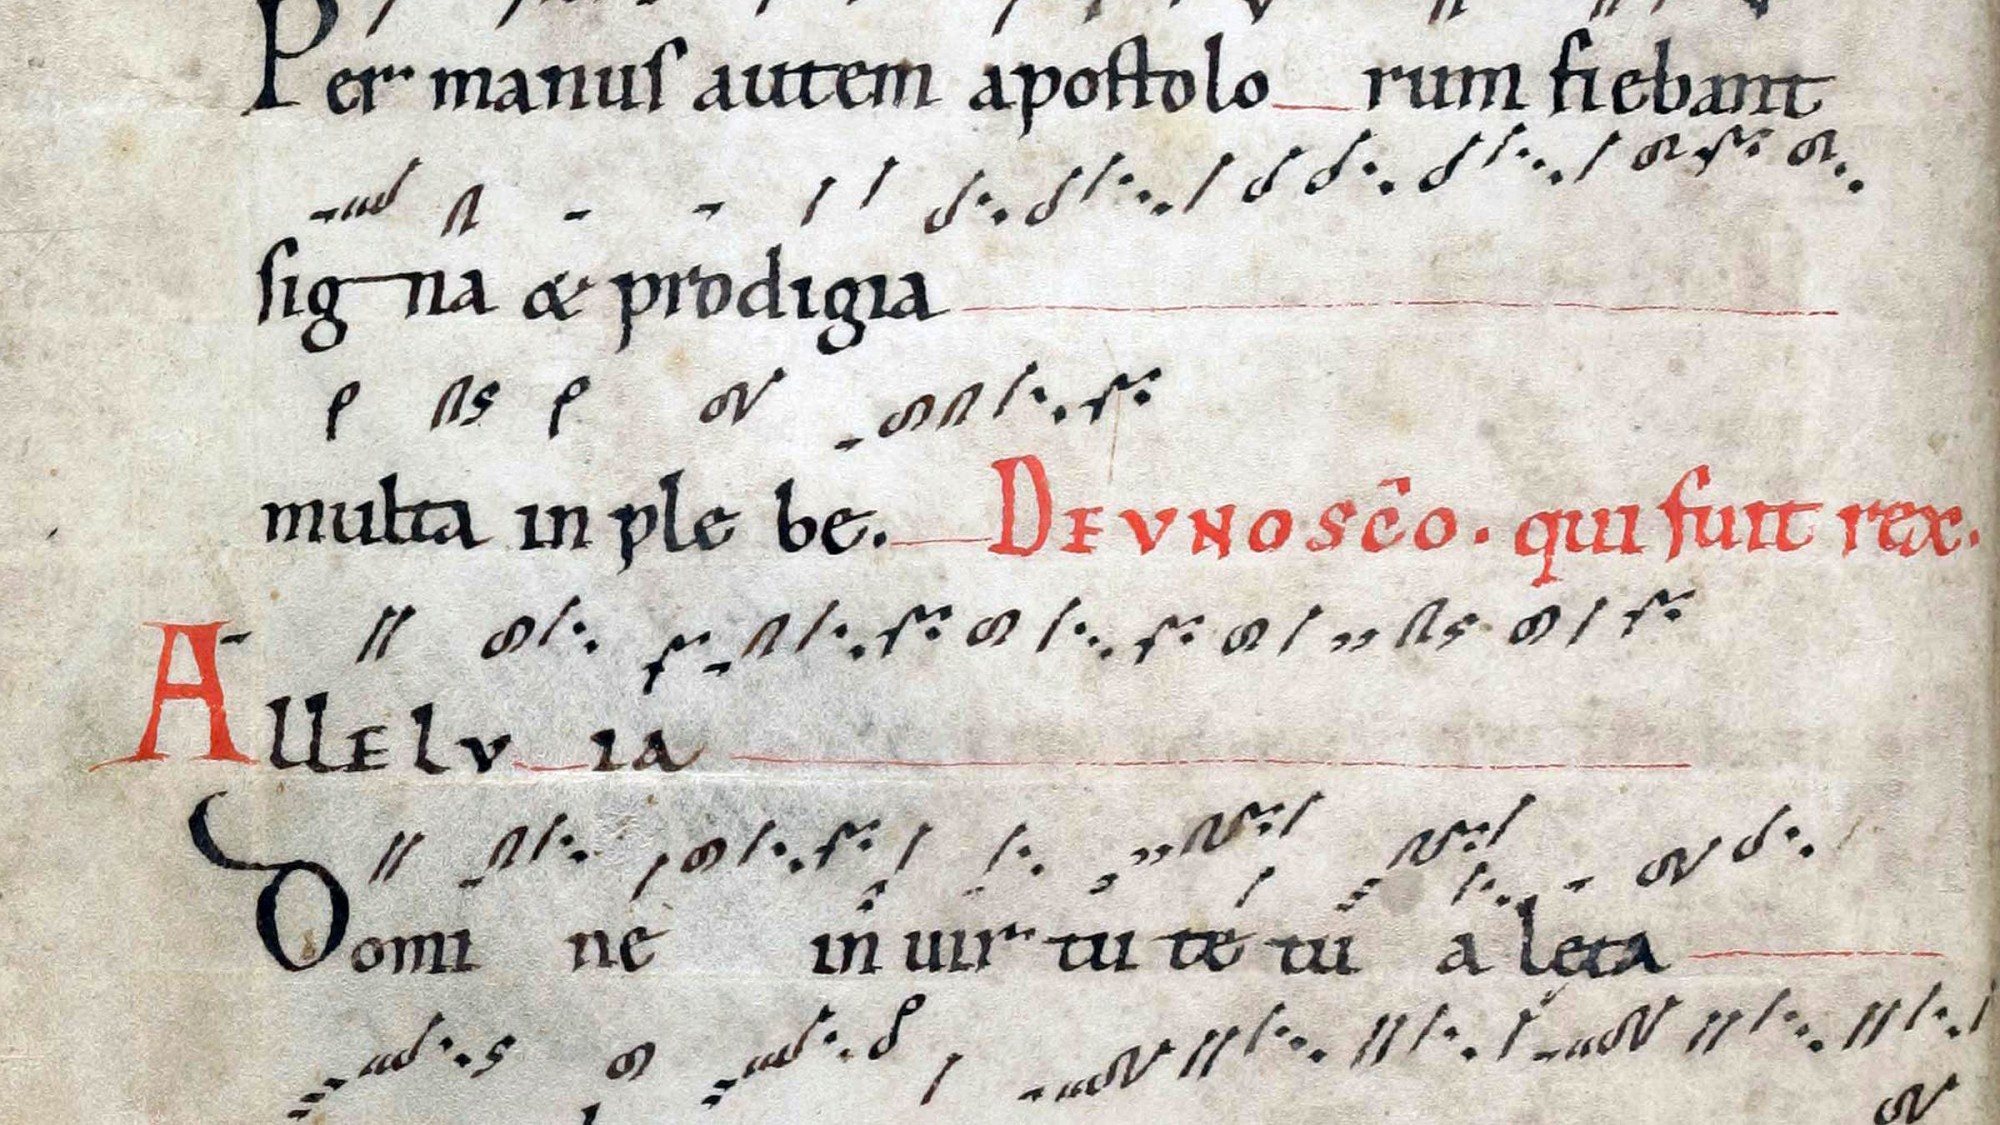 Per manus autem apostolo rum fiebant
sig na & prodigia
multa in ple be. DE VNO SC̄O. qui fuit rex.
ALLELV IA
Domi ne in uir tu te tu a lęta